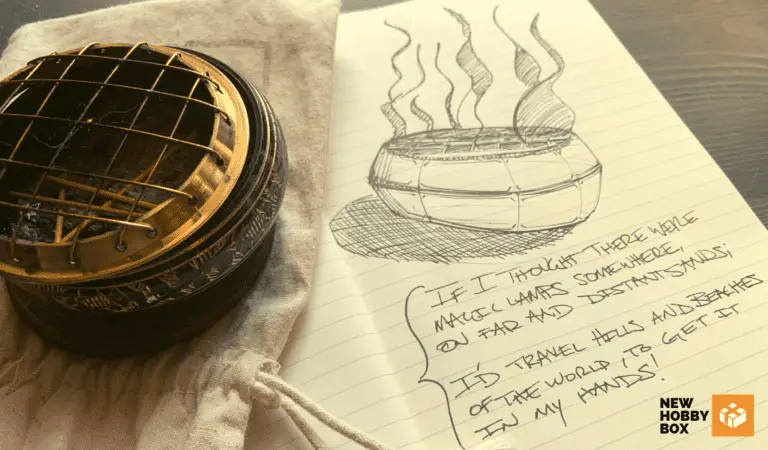 IF I THOUGHT THERE WERE
MAGIC LAMPS SOMEWHERE,
ON FAR AND DISTANT SANDS;
I'D TRAVEL HILLS AND BEACHES
OF THE WORLD, TO GET IT
IN MY HANDS!
NEW
HOBBY
BOX